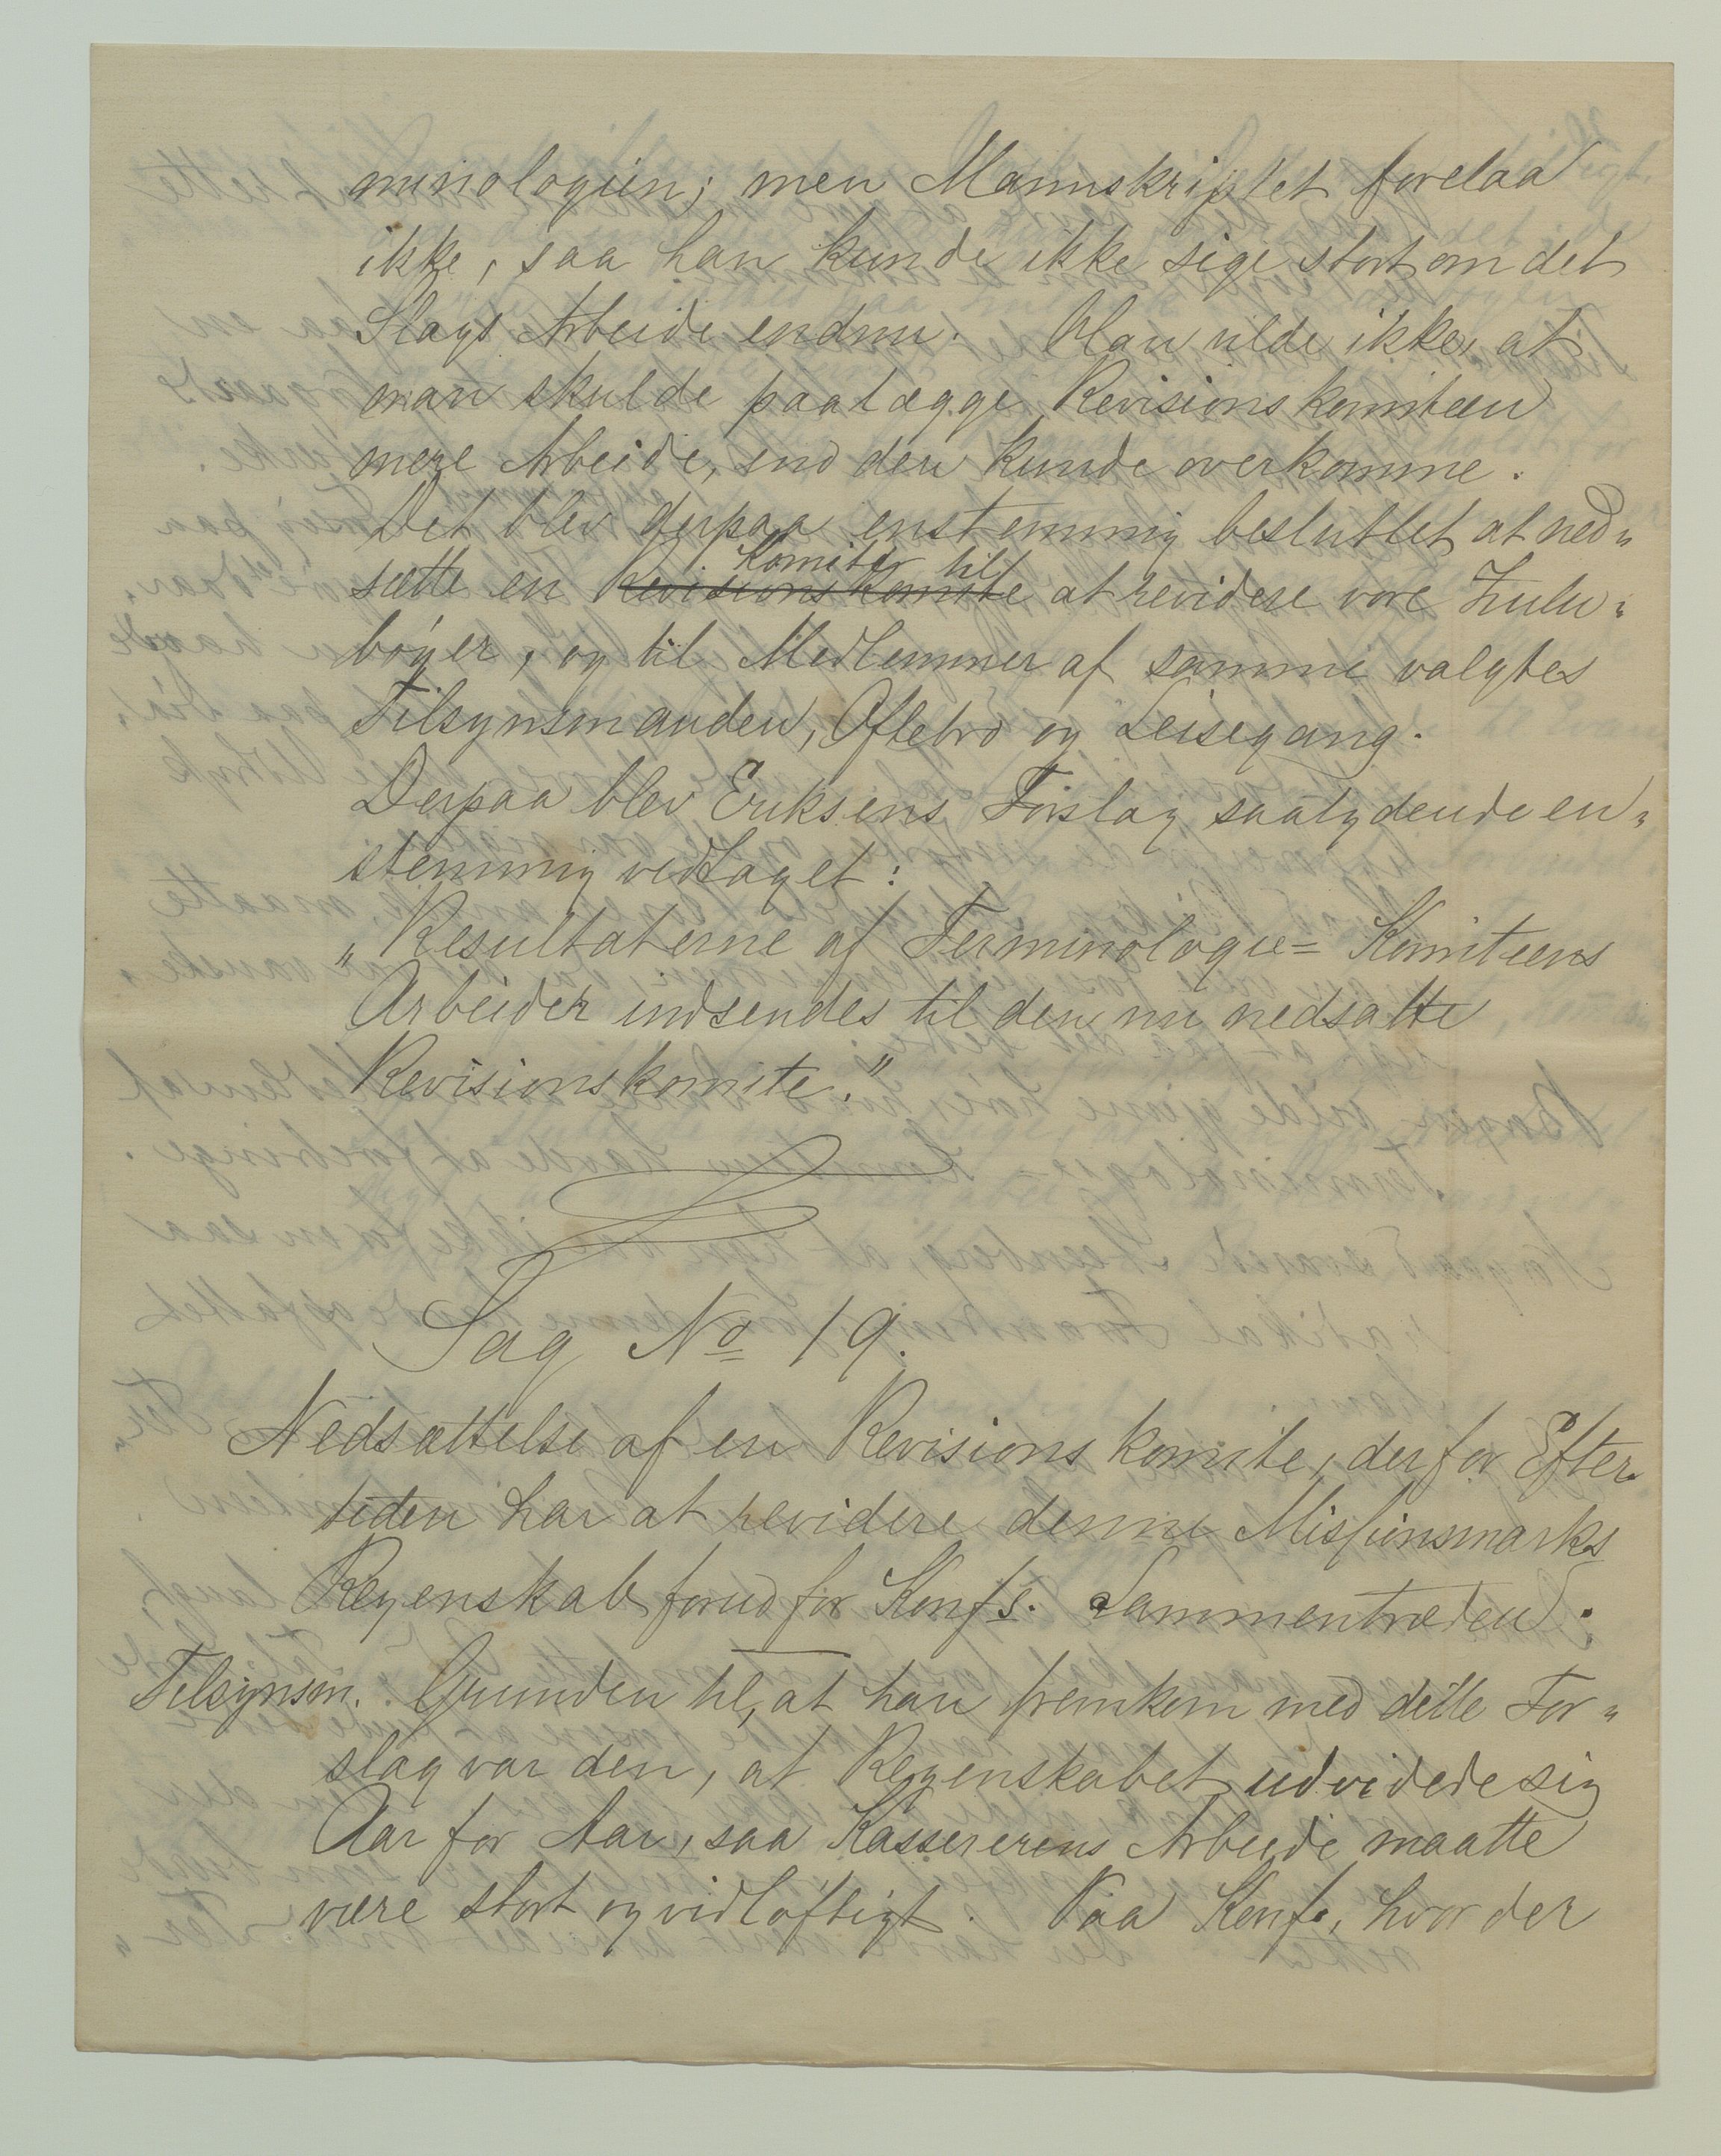 minologien; men Manuskriptet forelaa
ikke, saa han kunde ikke sige stort om det
Slags Arbeide endnu. Han vilde ikke, at
man skulde paalægge Revisionskomiteen
mere Arbeide, end den kunde overkomme.
Det blev derpaa enstemmig besluttet at ned„
Komite til
sætte en Revisionskomite at revidere vore Zulu„
bøger, og til Medlemmer af samme valgtes
Tilsynsmanden, Oftebro og Leisegang.
Derpaa blev Eriksens Forslag saalydende en„
stemmig vedtaget:
„Resultaterne af Terminologie= Komiteens
Arbeider indsendes til den nu nedsatte
Revisionskomite."
Sag No 19.
Nedsættelse af en Revisionskomite, der for Efter„
tiden har at revidere denne Missionsmarks
Regenskab forud for Konfs. Sammentræden.
Tilsynsm. Grunden til, at han fremkom med dette For„
slag var den, at Regenskabet udvidede sig
Aar for Aar, saa Kassererens Arbeide maatte
være stort og vidløftigt. Paa Konf., hvor der